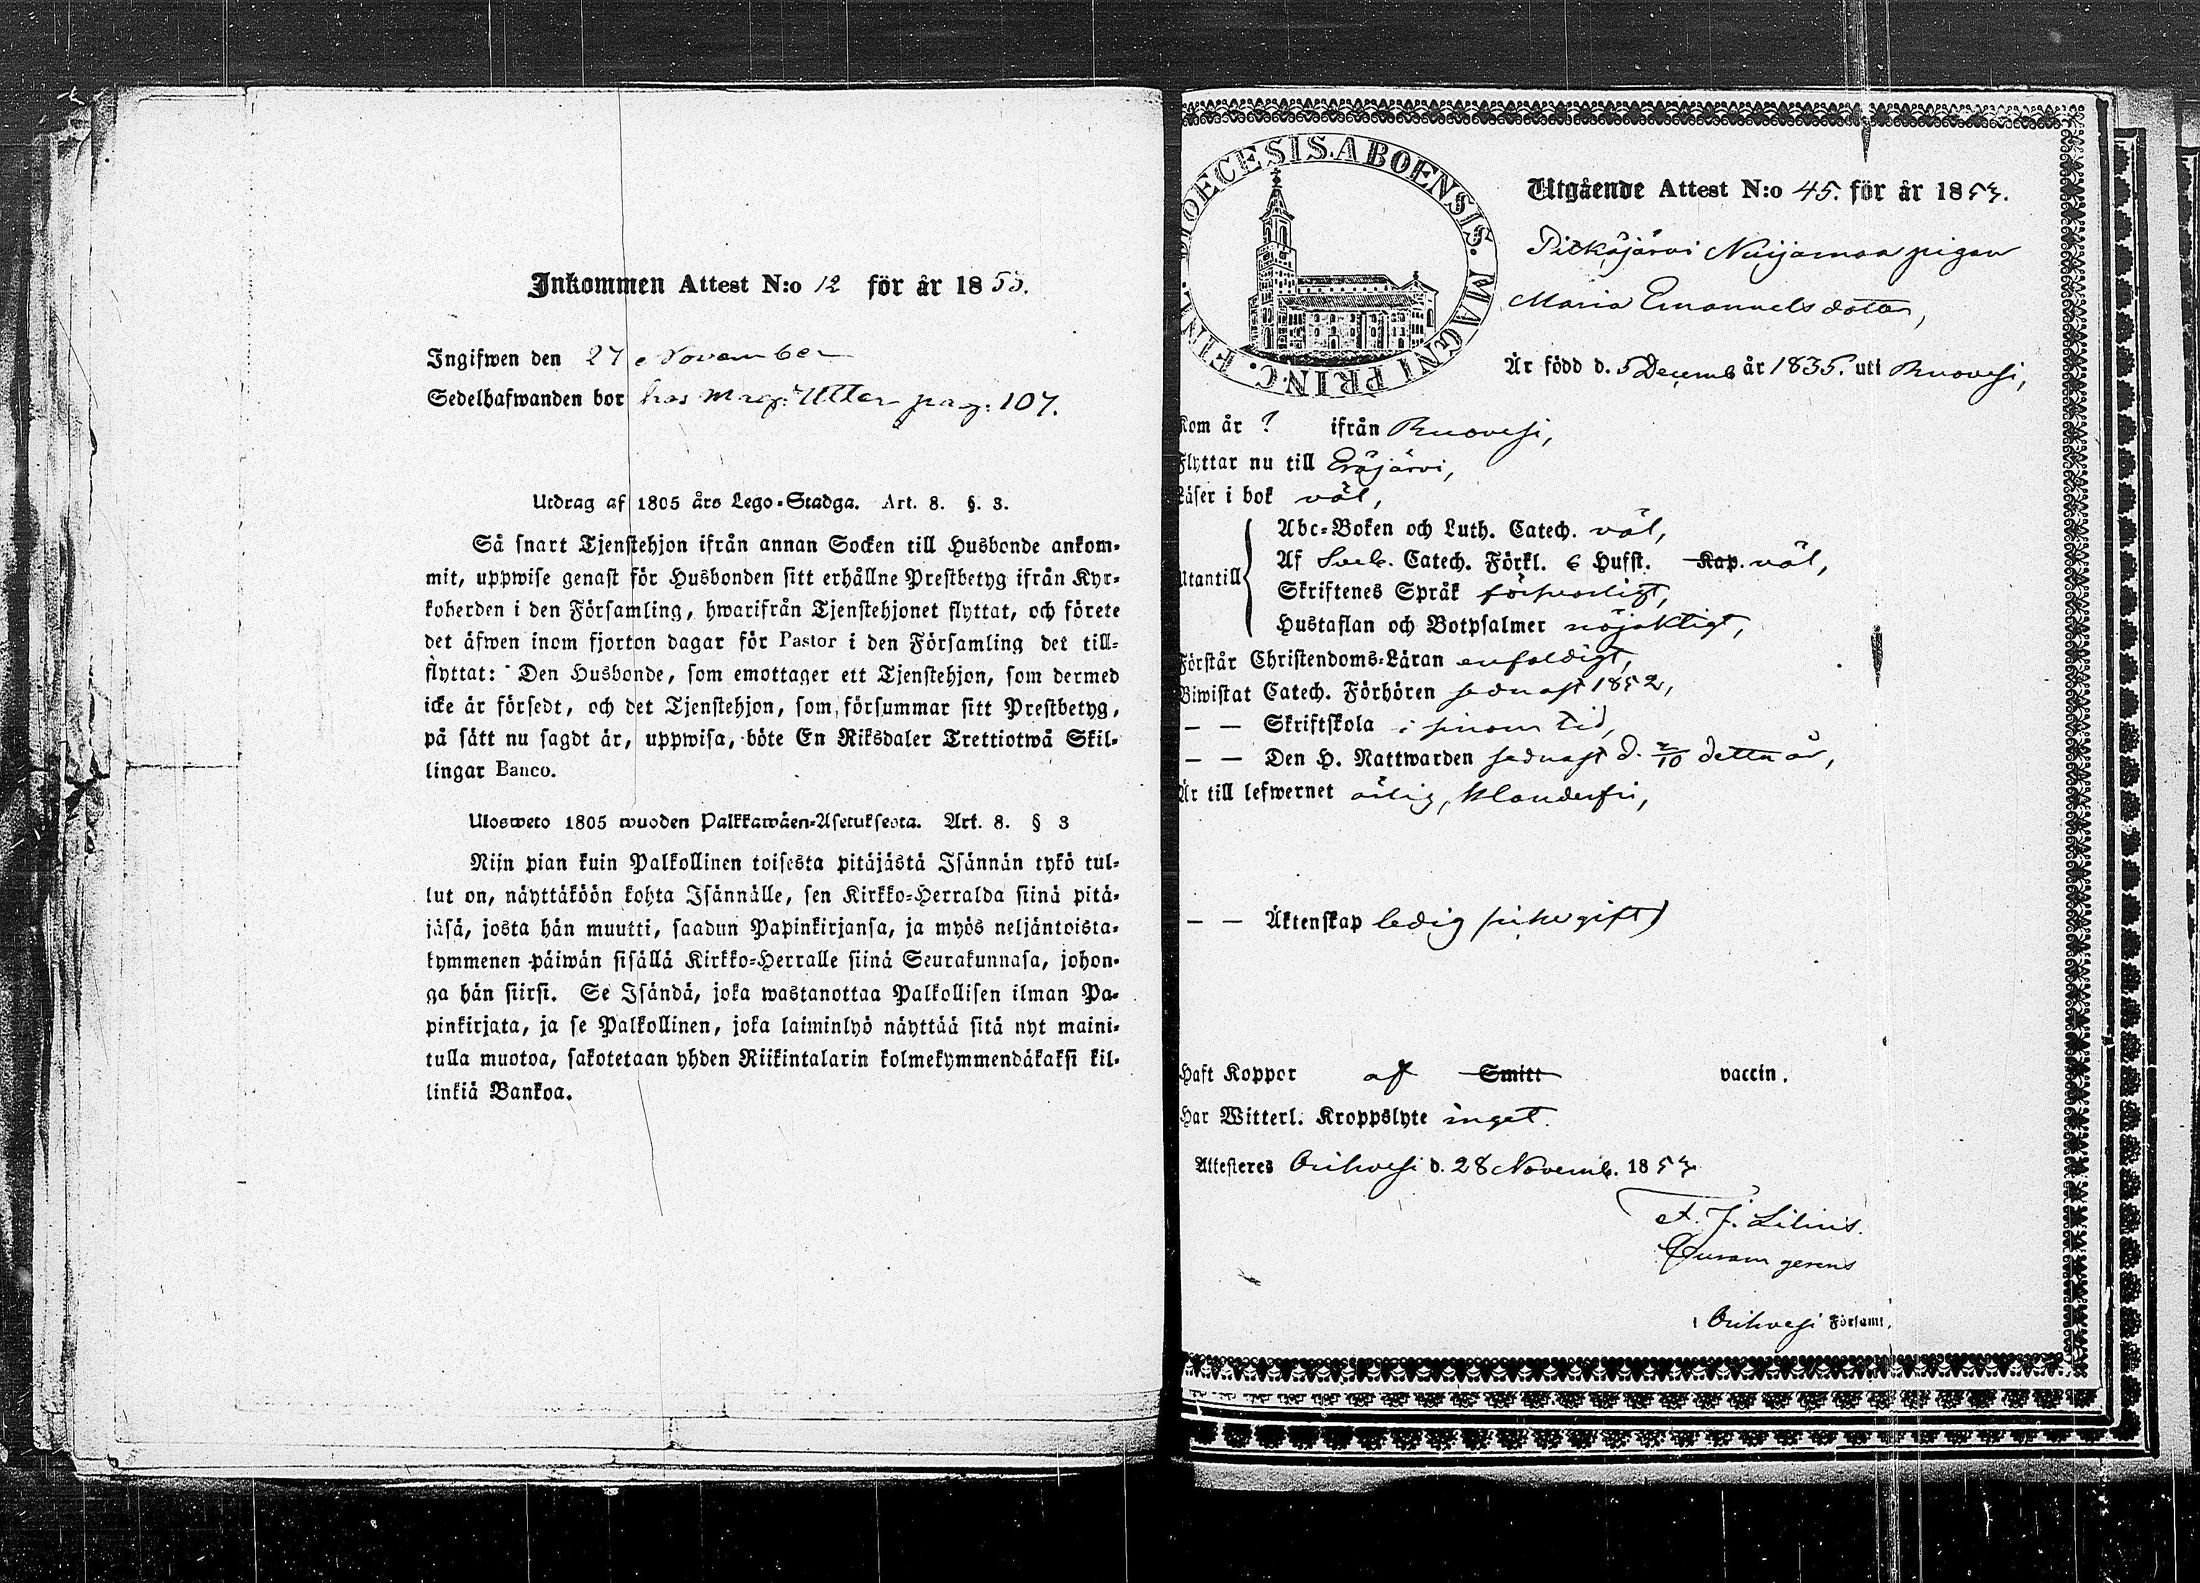 Inkommen Attest N:o 12 för år 1853.
Ingifwen den 27 November
Sedelhafwanden bor hos pag: 107.
Utdrag af 1805 års Lego-Stadga. Art. 8. §. 3.
Så snart Tjenstehjon ifrån annan Socken till Husbonde ankom-
mit, uppwise genast för Husbonden sitt erhållne Prestbetyg ifrån Kyr-
koherden i den Församling, hwarifrån Tjenstehjonet flyttat, och förete
det äfwen inom fjorton dagar för Pastor i den Församling det till-
flyttat: Den Husbonde, som emottager ett Tjenstehjon, som dermed
icke är försedt, och det Tjenstehjon, som försummar sitt Prestbetyg,
på sätt nu sagdt är, uppwisa, böte En Riksdaler Trettiotwå Skil-
lingar Banco.
Ulosweto 1805 wuoden Palkkawäen-Asetuksesta. Art. 8. § 3
Niin pian kuin Palkollinen toisesta pitäjästä Isännän tykö tul-
lut on, näyttäköön kohta Isännälle, sen Kirkko-Herralda siinä pitä-
jäsä, josta hän muutti, saadun Papinkirjansa, ja myös neljäntoista-
kymmenen päiwän sisällä Kirkko-Herralle siinä Seurakunnasa, johon-
ga hän siirsi. Se Isändä, joka wastanottaa Palkollisen ilman Pa-
pinkirjata, ja se Palkollinen, joka laiminlyö näyttää sitä nyt maini-
tulla muotoa, sakotetaan yhden Riikintalarin kolmekymmendäkaksi kil-
linkiä Bankoa.
DIOECESIS. ABOENSIS. MAGNI PRINC. FINL.
Utgående Attest N:o 45. för år 1853.
Pitkäjärvi Nuijamaa pigan
Maria Emanuelsdotter,
Är född d. 5 Decemb år 1835. uti Ruovesi,
Kom år ? ifrån Ruovesi,
Flyttar nu till Eräjärvi,
Läser i bok väl,
Utantill
Abc-Boken och Luth. Catech. väl,
Af Sveb. Catech. Förkl. 6 Hufst. Kap. väl,
Skriftenes Språk försvarligt,
Hustaflan och Botpsalmer nöjaktigt,
Förstår Christendoms-Läran enfaldigt,
Biwistat Catech. Förhören sednast 1852,
— — Skriftskola i sinom tid,
— — Den H. Nattwarden sednast d. 2/10 detta år,
Är till lefwernet ärlig, klanderfri,
— — Äktenskap ledig (icke gift)
Haft Koppor af Smitt vaccin.
Har Witterl. Kroppslyte inget.
Attesteres Orihvesi d. 28 Novemb. 1853
A. J. Lilius.
Curam gerens
i Orihvesi Församl.